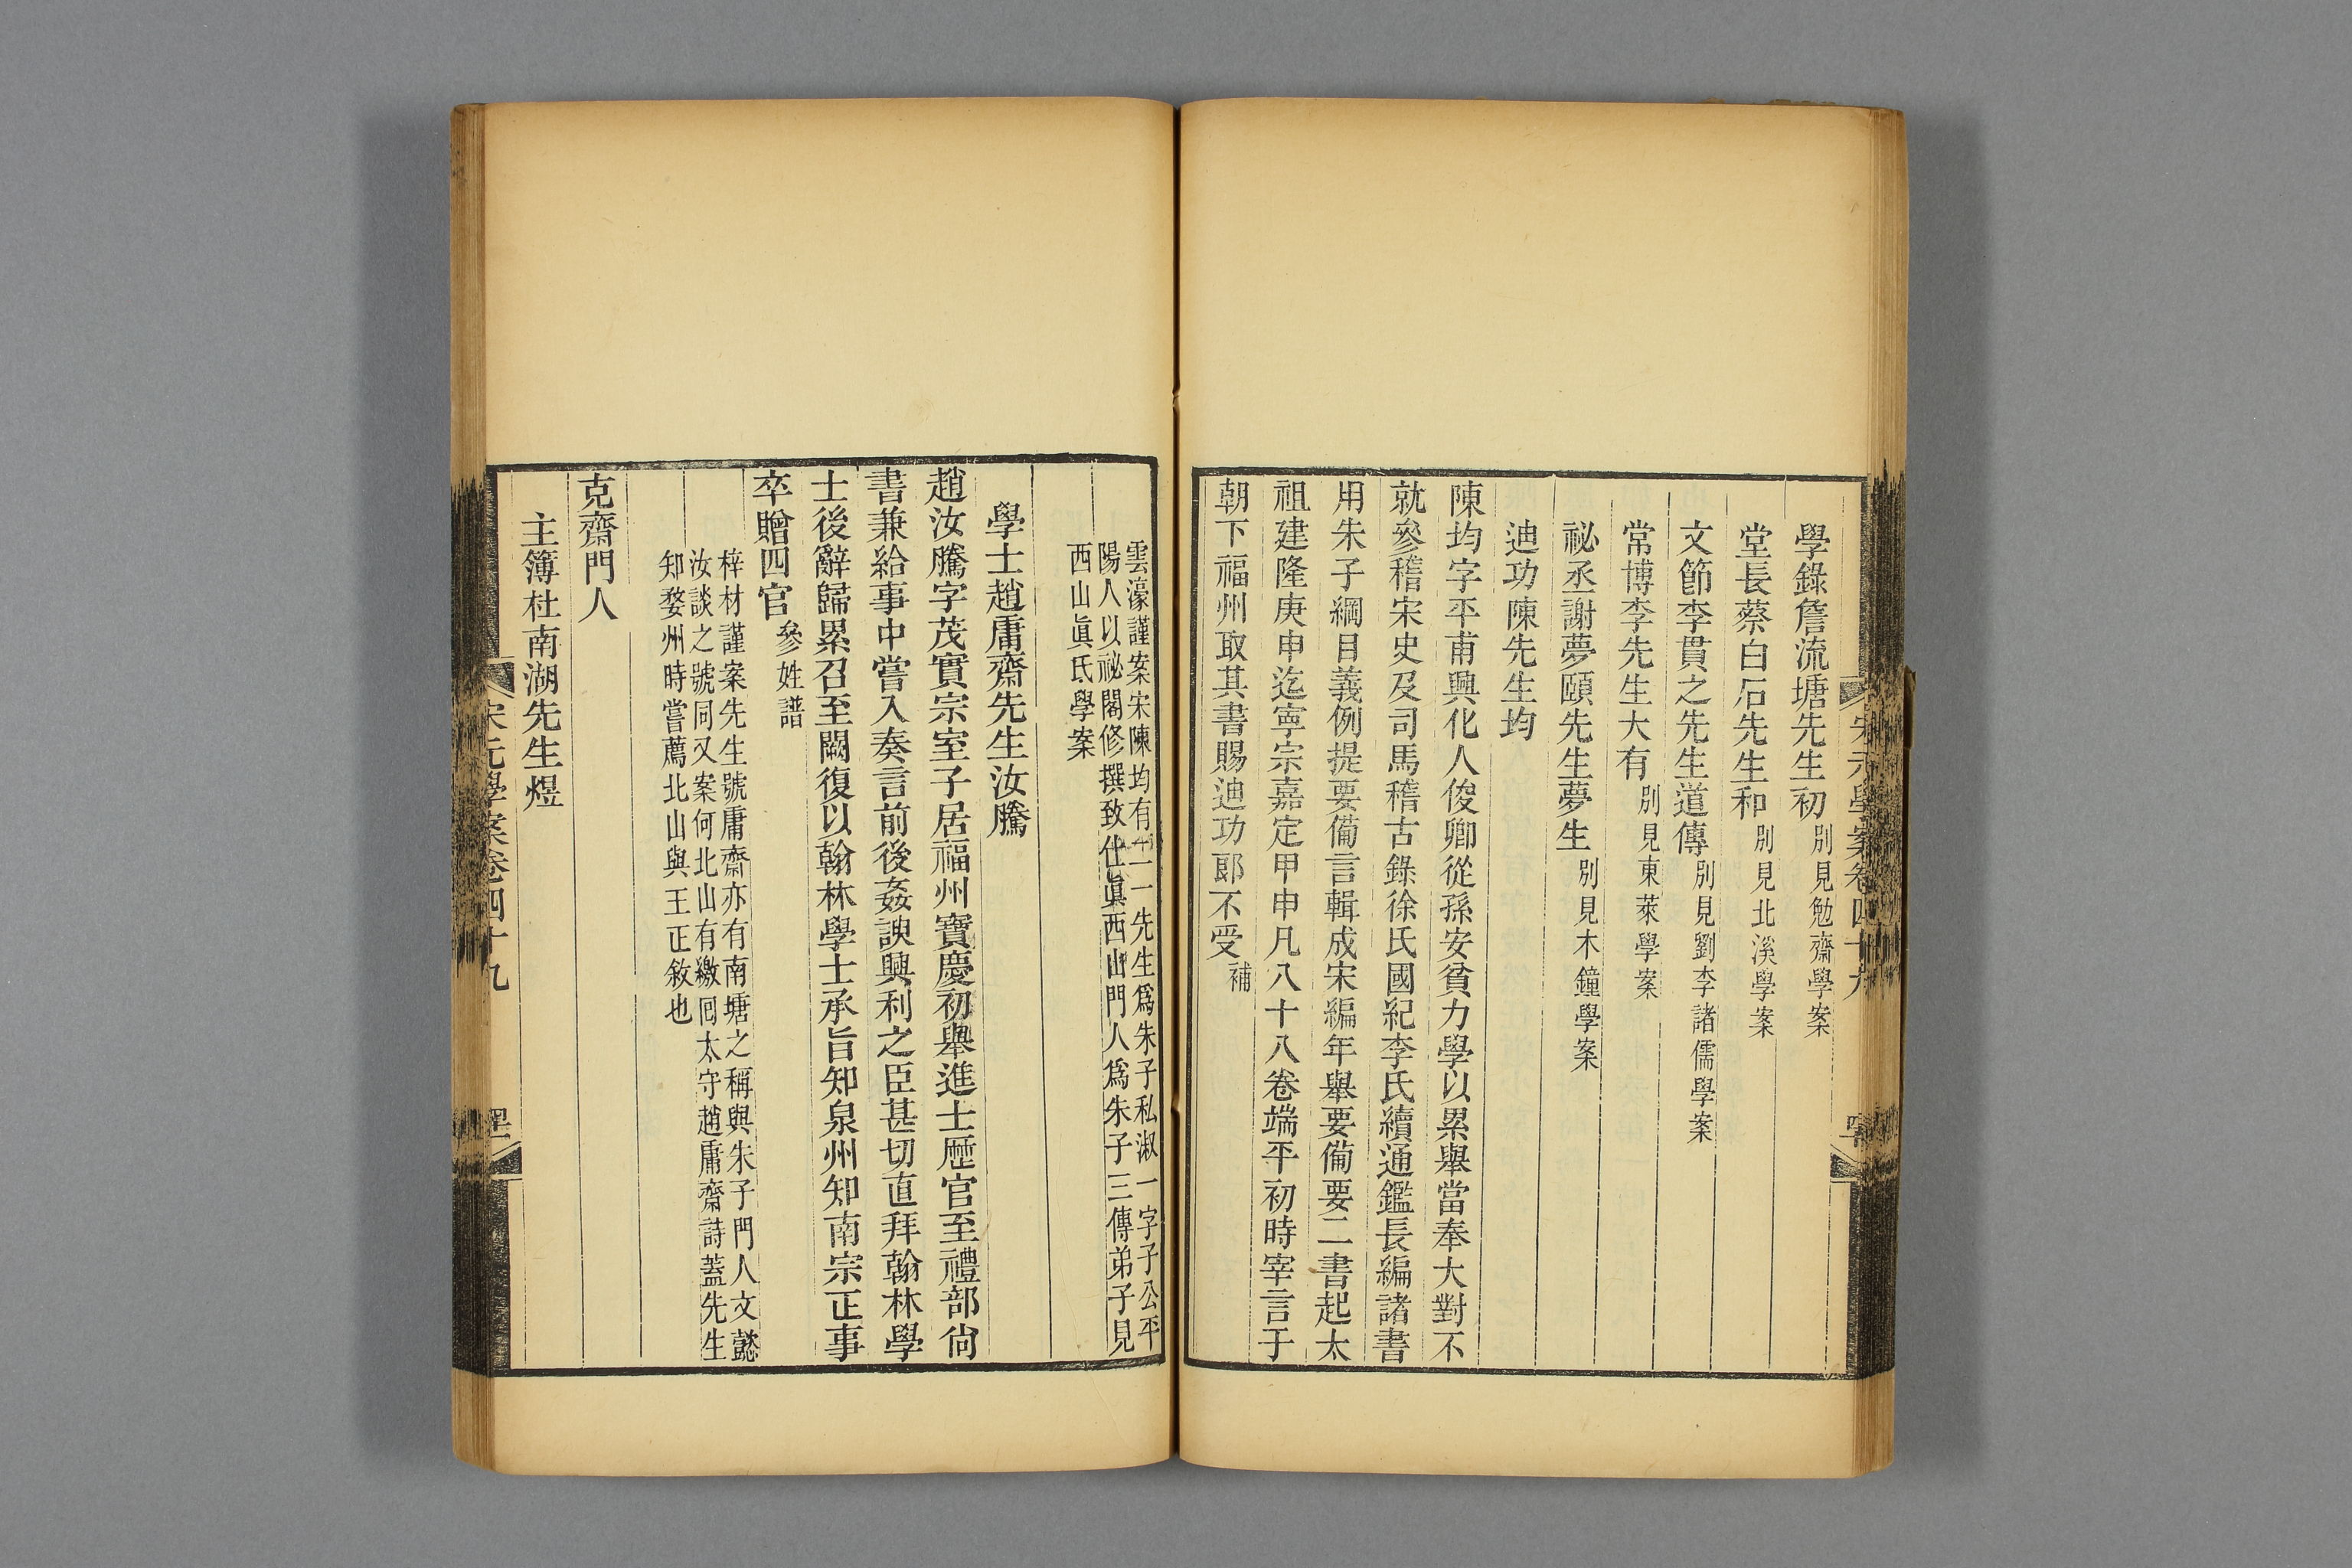 學錄詹流塘先生初 別見勉齋學案
堂長蔡白石先生和 別見北溪學案
文節李貫之先生道傳 別見劉李諸儒學案
常博李先生大有 別見東萊學案
祕丞謝夢頤先生夢生 別見木鐘學案
迪功陳先生均
陳均字平甫興化人俊卿從孫安貧力學以累舉當奉大對不
就參稽宋史及司馬稽古錄徐氏國紀李氏續通鑑長編諸書
用朱子綱目義例提要備言輯成宋編年舉要備要二書起太
祖建隆庚申迄寧宗嘉定甲申凡八十八卷端平初時宰言于
朝下福州取其書賜迪功郎不受 補
雲濠謹案宋陳均有二一先生爲朱子私淑一字子公平
陽人以祕閣修撰致仕眞西山門人爲朱子三傳弟子見
西山眞氏學案
學士趙庸齋先生汝騰
趙汝騰字茂實宗室子居福州寶慶初舉進士歷官至禮部尙
書兼給事中嘗入奏言前後姦諛興利之臣甚切直拜翰林學
士後辭歸累召至闕復以翰林學士承旨知泉州知南宗正事
卒贈四官 參姓譜
梓材謹案先生號庸齋亦有南塘之稱與朱子門人文懿
汝談之號同又案何北山有繳回太守趙庸齋詩蓋先生
知婺州時嘗薦北山與王正敘也
克齋門人
主簿杜南湖先生煜
宋元學案卷四十九